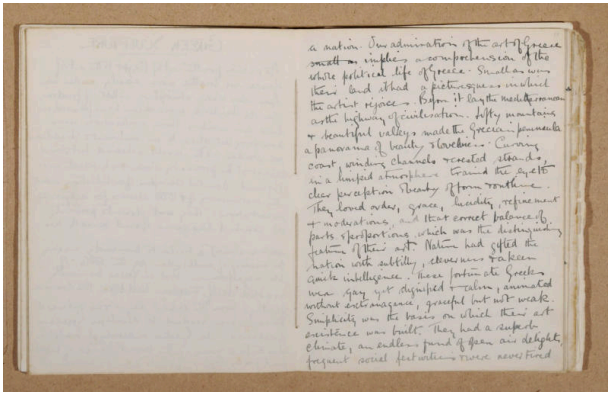 a nation. Our admiration of the art of Greece
small as implies a comprehension of the
whole political life of Greece. Small as was
their land it had a picturesqueness in which
the artist rejoices. Before it lay the mediterranean
as the highway of civilisation. Lofty mountains
& beautiful valleys made the Grecian peninsula
a panorama of beauty & loveliness. Curving
coast, winding channels & crested strands,
in a limpid atmosphere trained the eye to
clear perception & beauty of form & outline.
They loved order, grace, lucidity, refinement
& moderations, and that correct balance of
parts & proportions which was the distinguishing
feature of their art. Nature had gifted the
nation with subtilty, cleverness & a keen
quick intelligence. These fortunate Greeks
were gay yet dignified & calm, animated
without extravagance, graceful but not weak.
Simplicity was the basis on which their art
existence was built. They had a superb
climate, an endless fund of open air delights,
frequent social festivities & were never tired